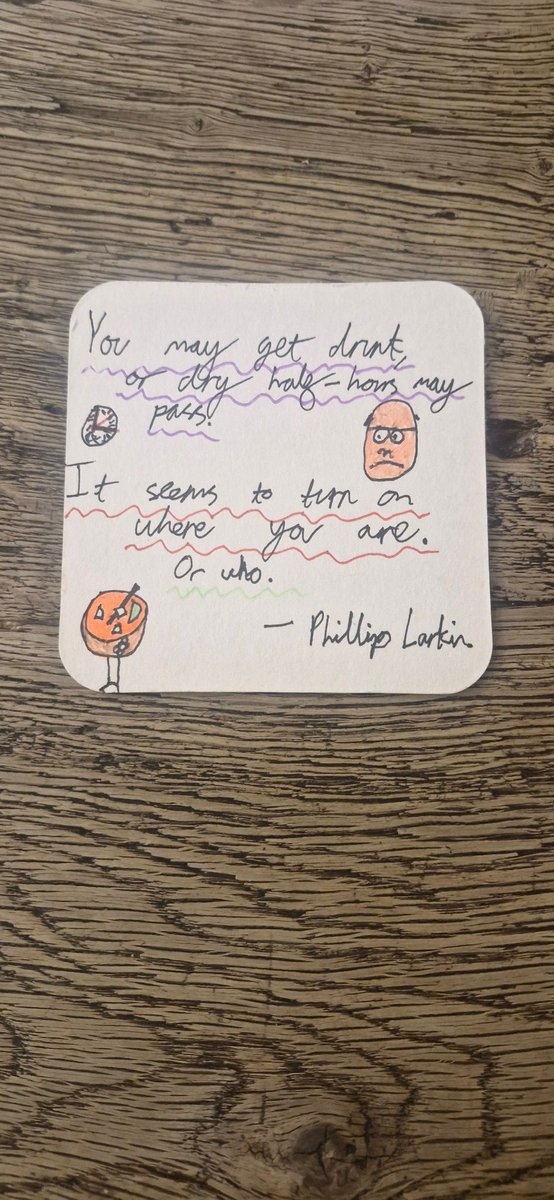 You may get drunk,
or dry half-hours may
pass.
It seems to turn on
where you are.
Or who.
— Phillip Larkin